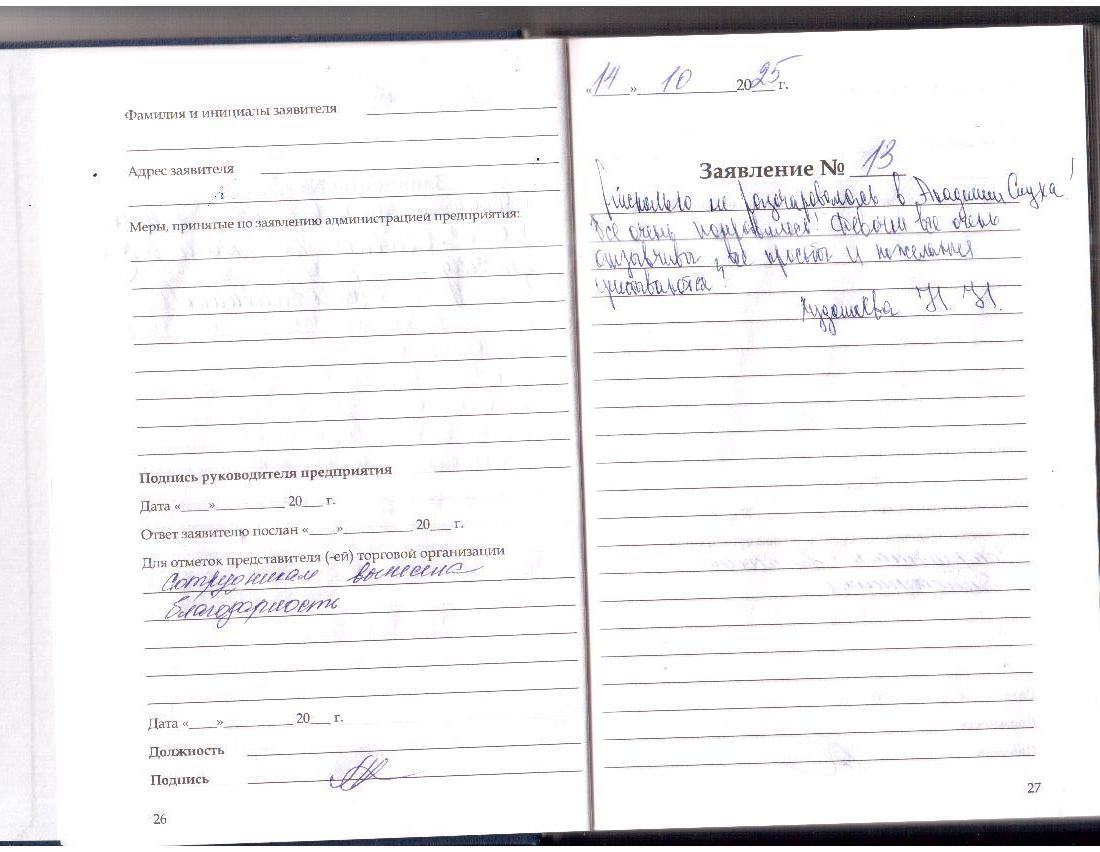 Фамилия и инициалы заявителя
Адрес заявителя
Меры, принятые по заявлению администрацией предприятия:
Подпись руководителя предприятия
Дата «____»__________ 20___ г.
Ответ заявителю послан «____»__________ 20___ г.
Для отметок представителя (-ей) торговой организации
Сотрудникам вынесена
благодарность
Дата «____»__________ 20___ г.
Должность
Подпись
26
«14» 10 2025 г.
Заявление № 13
не разочаровалась в Академии Слуха!
Все очень понравилось! Девочки все очень
отзывчивы, все просьбы и пожелания
учитываются!
Н. Н.
27